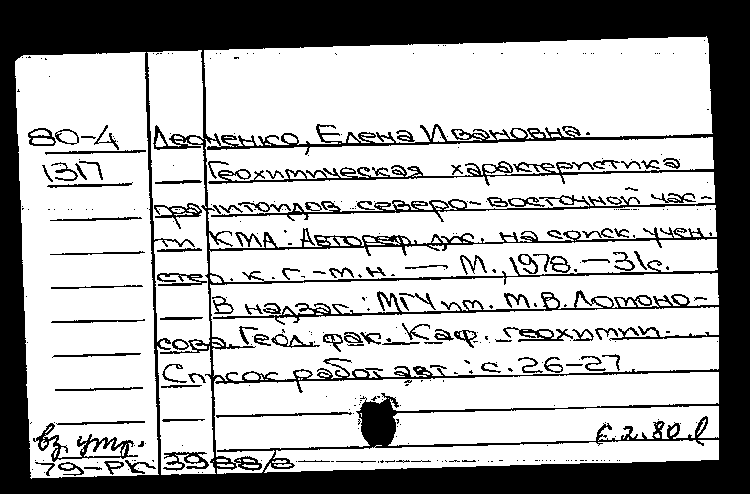 80-4 Леоненко, Елена Ивановна.
1317 Геохимическая характеристика
гранитоидов северо-восточной час-
ти КМА: Автореф. дис. на соиск. учен.
степ. к. г.-м. н. — М., 1978. — 31с.
В надзаг.: МГУ им. М.В. Ломоно-
сова. Геол. фак. Каф. геохимии...
Список работ авт.: с. 26-27.
вз. утр. 6.2.80.
79-РК 3988/8